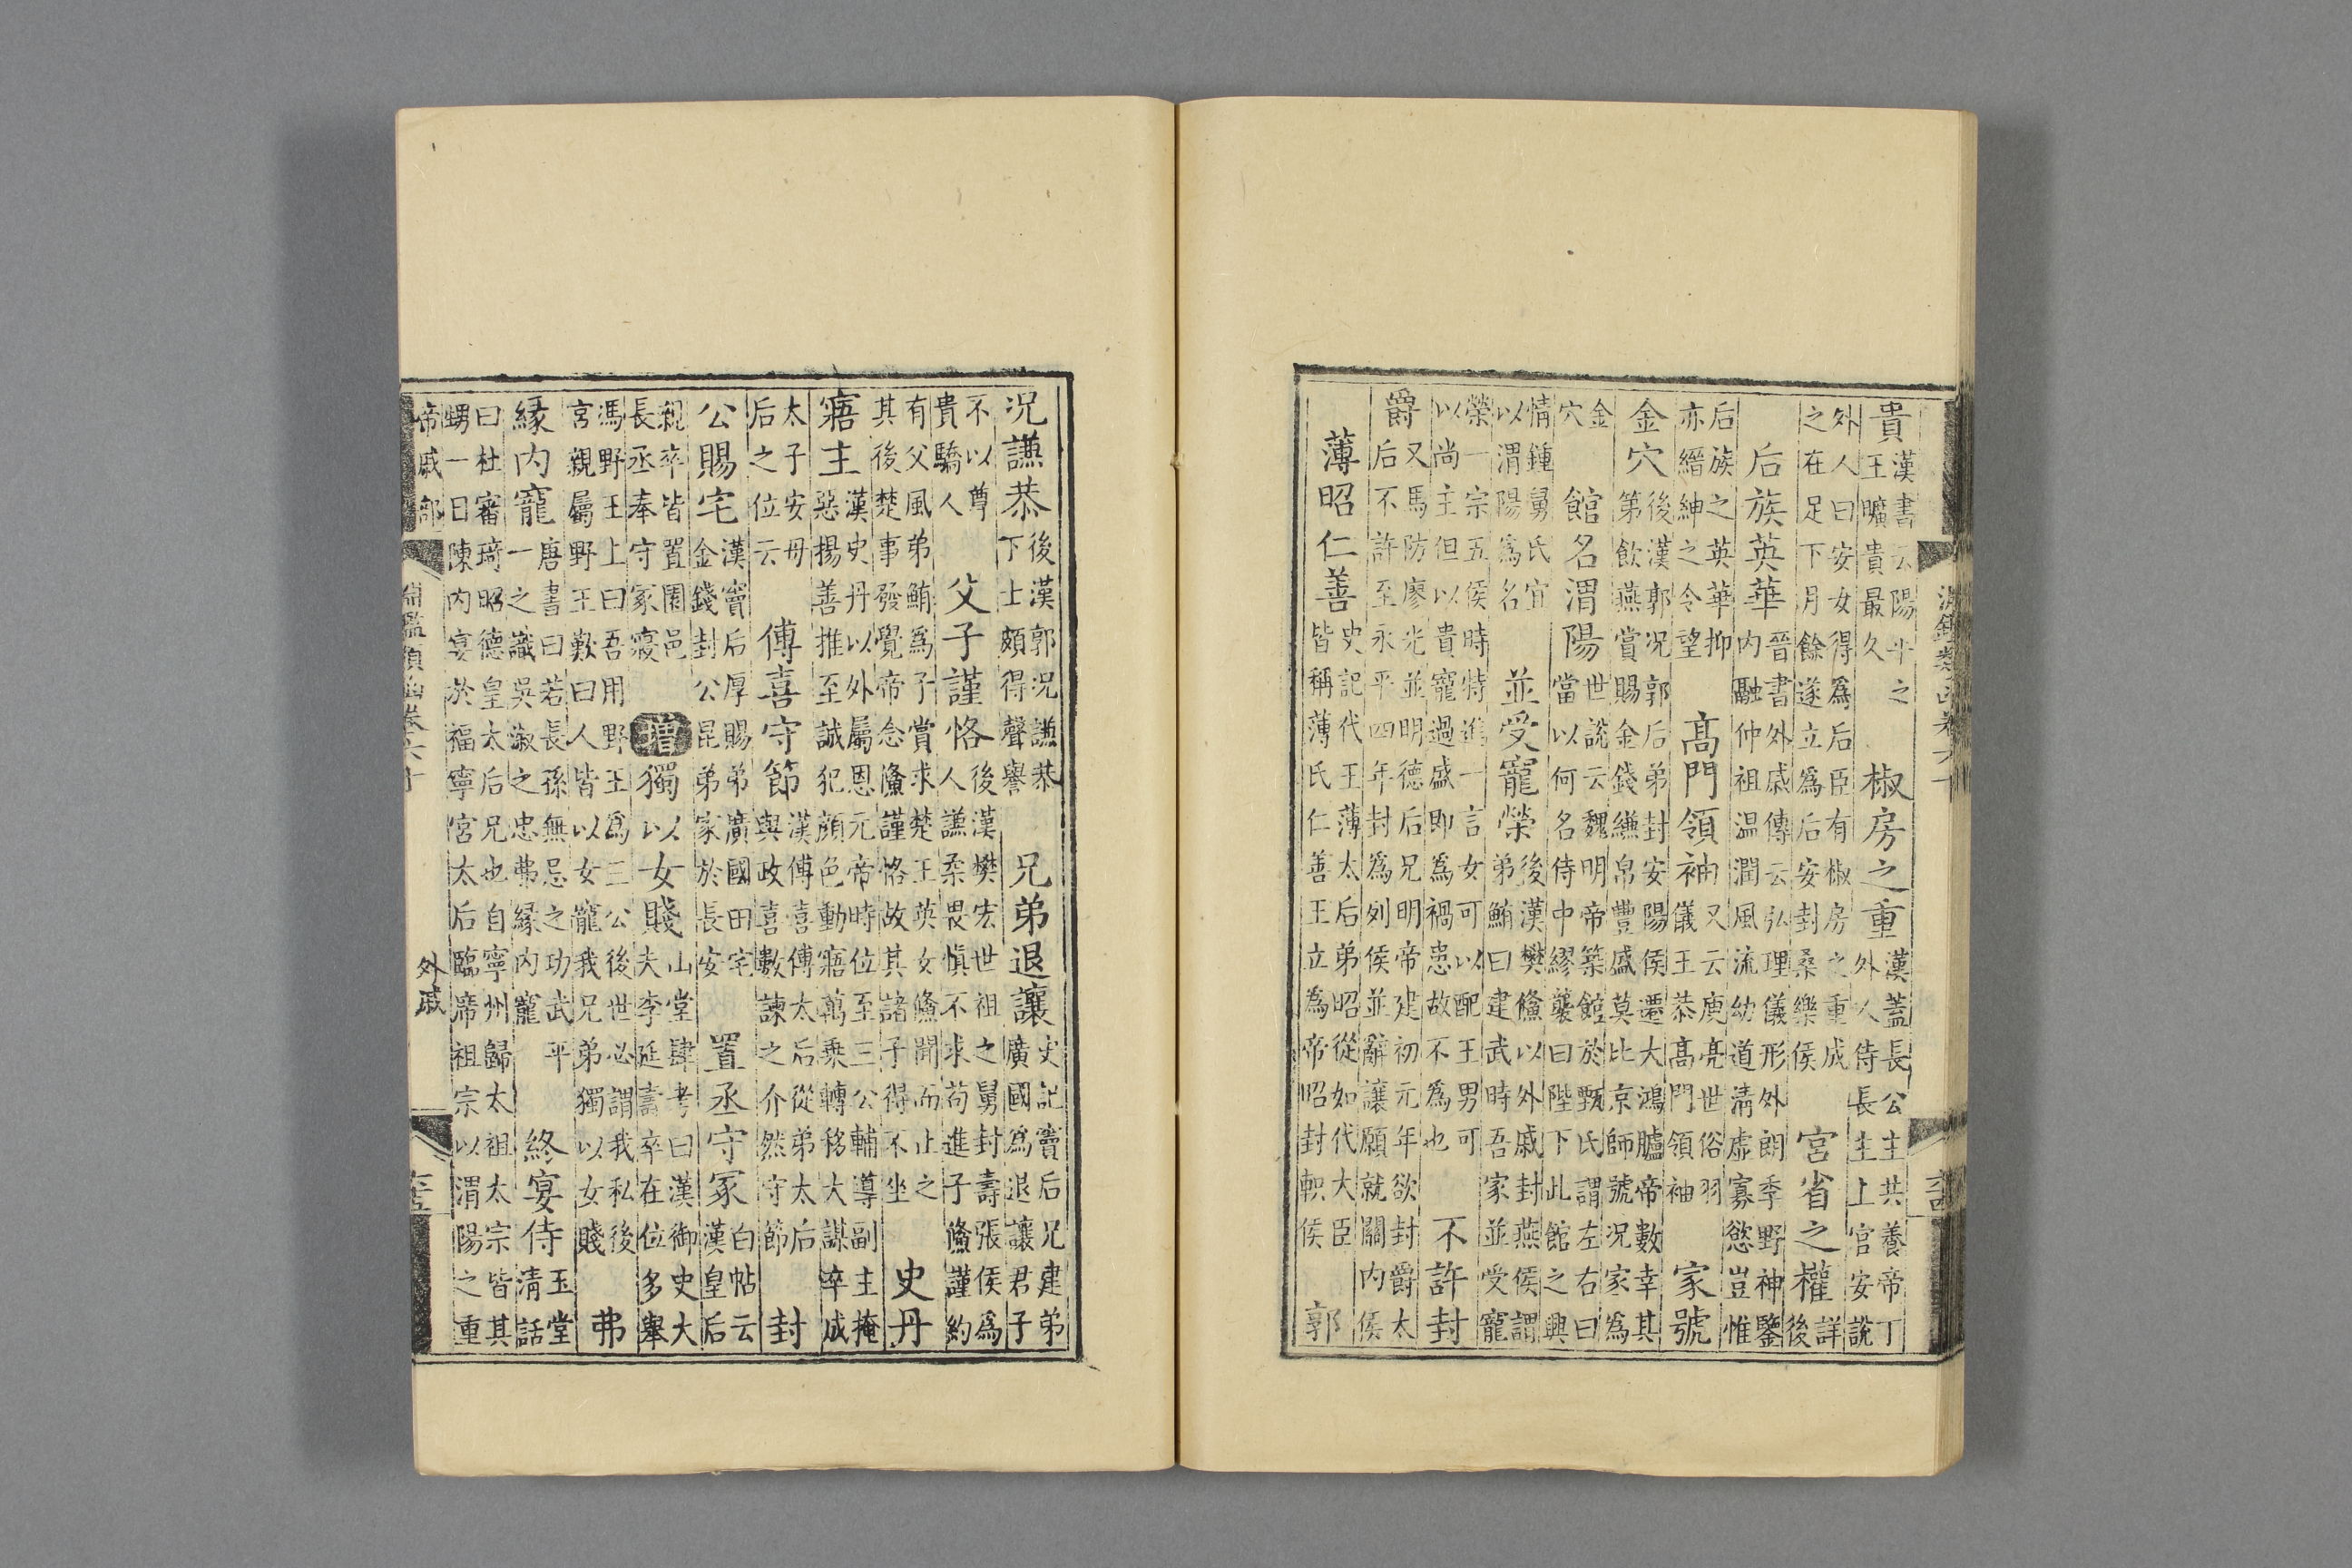 淵鑑類函卷六十
貴
漢書云陽平之
王曠貴最久
椒房之重
漢蓋長公主共養帝丁
外人侍長主上官安說
外人曰安女得為后臣有椒房之重成
之在足下月餘遂立為后安封桑樂侯
宮省之權
詳
後
后族英華
晉書外戚傳云弘理儀形外朗季野神鑒
内融仲祖温潤風流幼道清虛寡慾豈惟
后族之英華抑
亦縉紳之令望
高門領袖
又云庾亮世俗羽
儀王恭高門領袖
家號
金穴
後漢郭况郭后弟封安陽侯遷大鴻臚帝數幸其
第飲燕賞賜金錢縑帛豐盛莫比京師號况家為
金
穴
館名渭陽
世說云魏明帝築館於甄氏謂左右曰
當以何名侍中繆襲曰陛下此館之興
情鍾舅氏宜
以渭陽為名
並受寵榮
後漢樊鯈以外戚封燕侯謂
弟鮪曰建武時吾家並受寵
榮一宗五侯時特進一言女可以配王男可
以尚主但以貴寵過盛即為禍患故不為也
不許封
爵
又馬防廖光並明德后兄明帝建初元年欲封爵太
后不許至永平四年封為列侯並辭讓願就關内侯
薄昭仁善
史記代王薄太后弟昭從如代大臣
皆稱薄氏仁善王立為帝昭封軹侯
郭
况謙恭
後漢郭况謙恭
下士頗得聲譽
兄弟退讓
史記竇后兄建弟
廣國為退讓君子
不以尊
貴驕人
父子謹恪
後漢樊宏世祖之舅封壽張侯為
人謙柔畏慎不求苟進子鯈謹約
有父風弟鮪為子賞求楚王英女鯈聞而止之
其後楚事發覺帝念鯈謹恪故其諸子得不坐
史丹
寤主
漢史丹以外屬恩元帝時位至三公輔導副主掩
惡揚善推至誠犯顔色動寤萬乗轉移大謀卒成
太子安毋
后之位云
傅喜守節
漢傅喜傅太后從弟太后
與政喜數諫之介然守節
封
公賜宅
漢竇后厚賜弟廣國田宅
金錢封公昆弟家於長安
置丞守冢
白帖云
漢皇后
親卒皆置園邑
長丞奉守冢寢
增
獨以女賤
山堂肆考曰漢御史大
夫李延壽卒在位多舉
馮野王上曰吾用野王為三公後世必謂我私後
宮親屬野王歎曰人皆以女寵我兄弟獨以女賤
弗
緣内寵
唐書曰若長孫無忌之功武平
一之識吳溆之忠弗緣内寵
終宴侍
玉堂
清話
曰杜審琦昭德皇太后兄也自寧州歸太祖太宗皆其
甥一日陳内宴於福寧宮太后臨席祖宗以渭陽之重
帝戚部
淵鑑類函卷六十
外戚